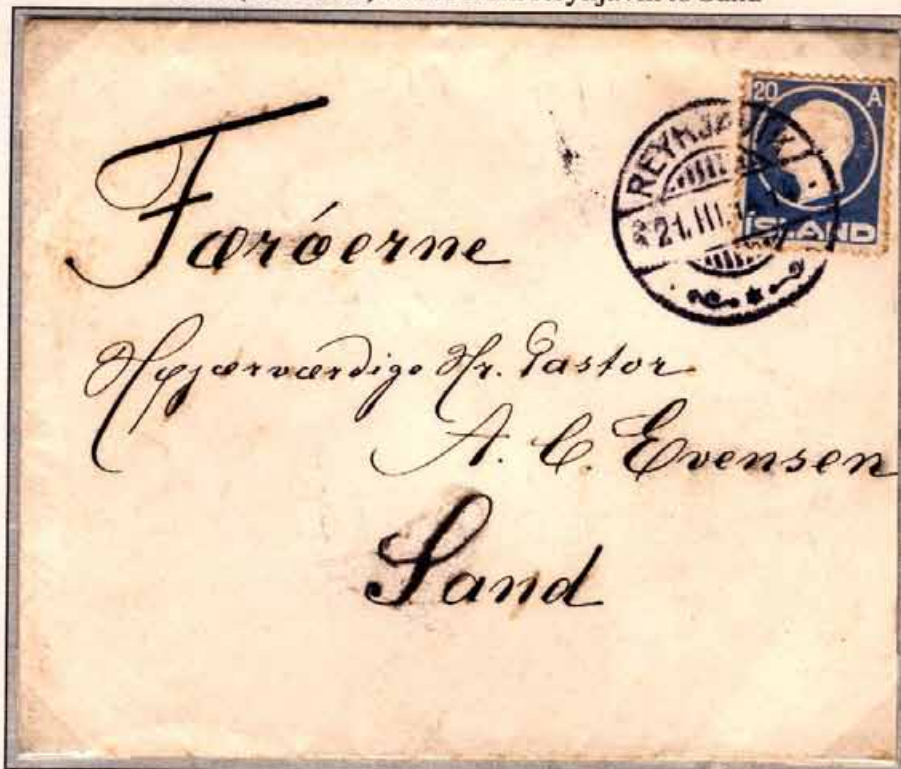 to Sand
20 A
ÍSLAND
REYKJAVIK
21.III.
Færóerne
Højærværdige Hr. Pastor
A. C. Evensen
Sand